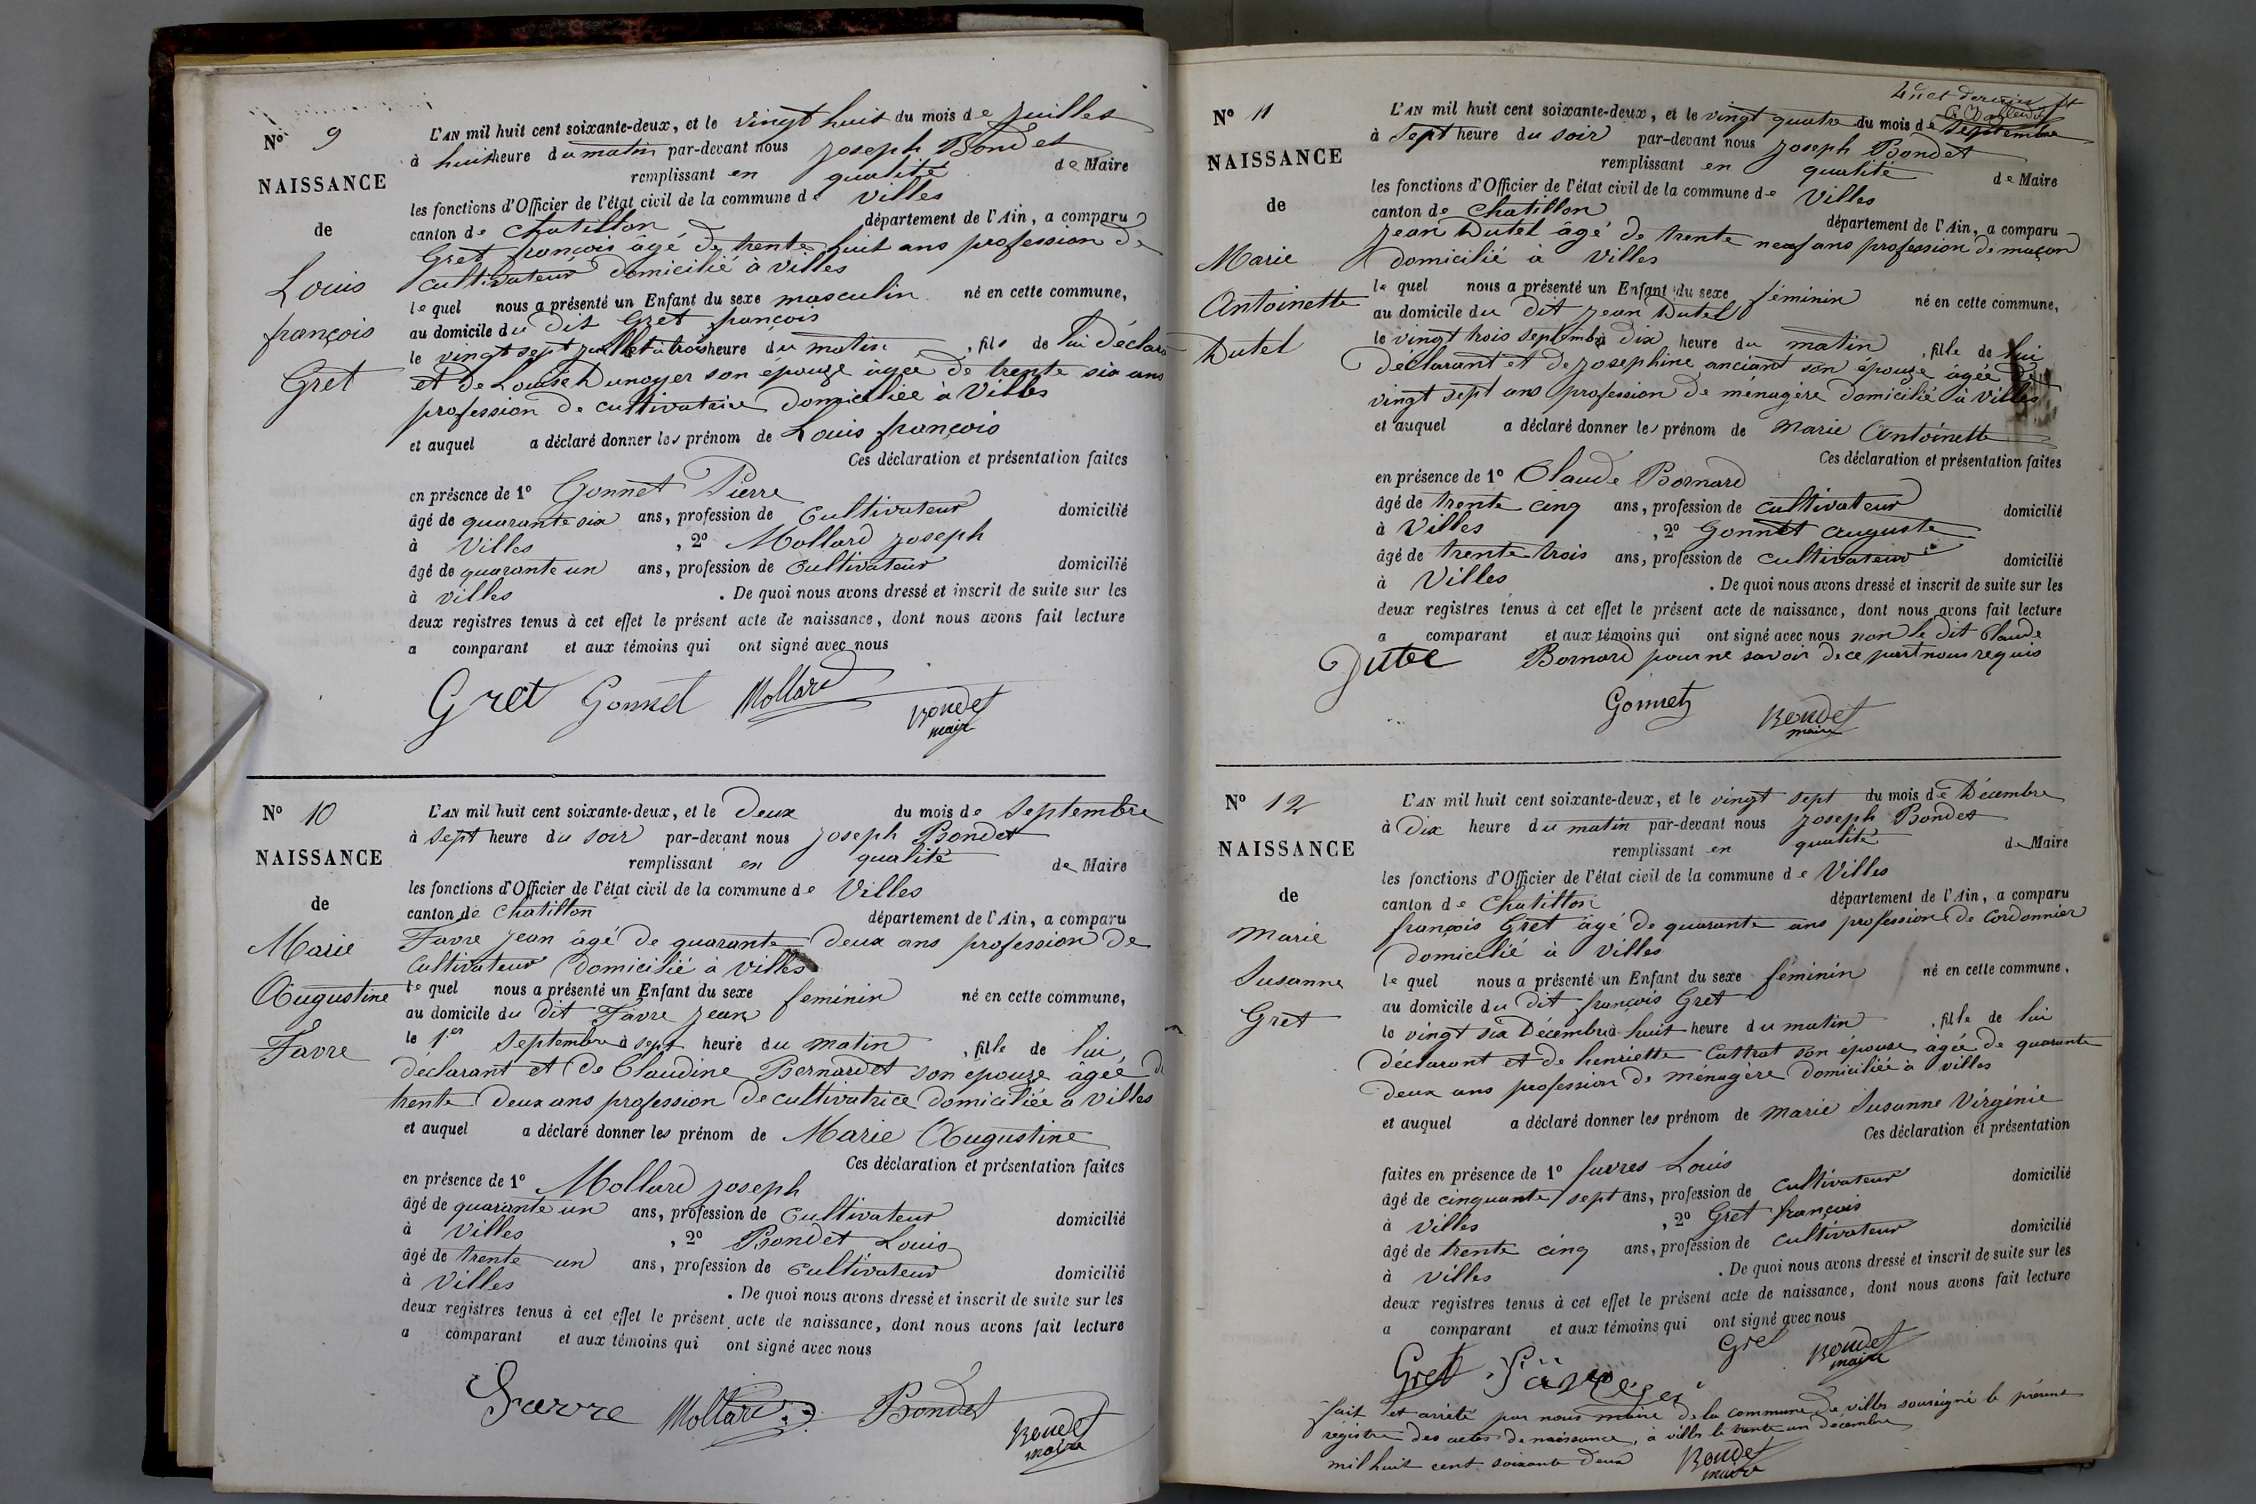 N° 9
NAISSANCE
de
Louis
françois
Gret
L'AN mil huit cent soixante-deux, et le vingt huit du mois de Juillet
à huit heure du matin par-devant nous Joseph Bondet
remplissant en qualité de Maire
les fonctions d'Officier de l'état civil de la commune de Villes
canton de Chatillon département de l'Ain, a comparu
Gret françois âgé de trente huit ans profession de
cultivateur domicilié à Villes
le quel nous a présenté un Enfant du sexe masculin né en cette commune,
au domicile du dit Gret françois
le vingt sept juillet à trois heure du matin , fils de lui déclarant
et de Louise Dunoyer son épouze âgée de trente six ans
profession de cultivatrice domiciliée à Villes
et auquel a déclaré donner les prénom de Louis françois
Ces déclaration et présentation faites
en présence de 1° Gonnet Pierre
âgé de quarante six ans, profession de Cultivateur domicilié
à Villes , 2° Mollard Joseph
âgé de quarante un ans, profession de Cultivateur domicilié
à Villes . De quoi nous avons dressé et inscrit de suite sur les
deux registres tenus à cet effet le présent acte de naissance, dont nous avons fait lecture
a comparant et aux témoins qui ont signé avec nous
Gret Gonnet Mollard Bondet
maire
N° 10
NAISSANCE
de
Marie
Augustine
Favre
L'AN mil huit cent soixante-deux, et le Deux du mois de Septembre
à Sept heure du soir par-devant nous Joseph Bondet
remplissant en qualité de Maire
les fonctions d'Officier de l'état civil de la commune de Villes
canton de Chatillon département de l'Ain, a comparu
Favre Jean âgé de quarante deux ans profession de
Cultivateur domicilié à Villes
le quel nous a présenté un Enfant du sexe feminin né en cette commune,
au domicile du dit Favre Jean
le 1er Septembre à sept heure du matin , fille de lui
déclarant et de Claudine Bernardet son epouze âgée de
trente deux ans profession de cultivatrice domiciliée a Villes
et auquel a déclaré donner les prénom de Marie Augustine
Ces déclaration et présentation faites
en présence de 1° Mollard Joseph
âgé de quarante un ans, profession de Cultivateur domicilié
à Villes , 2° Bondet Louis
âgé de trente un ans, profession de Cultivateur domicilié
à Villes . De quoi nous avons dressé et inscrit de suite sur les
deux registres tenus à cet effet le présent acte de naissance, dont nous avons fait lecture
a comparant et aux témoins qui ont signé avec nous
Favre Mollard Bondet Bondet
maire
4e et dernier ft
N° 11
NAISSANCE
de
Marie
Antoinette
Dutel
L'AN mil huit cent soixante-deux, et le vingt quatre du mois de Septembre
à Sept heure du soir par-devant nous Joseph Bondet
remplissant en qualité de Maire
les fonctions d'Officier de l'état civil de la commune de Villes
canton de Chatillon département de l'Ain, a comparu
Jean Dutel âgé de trente neuf ans profession de maçon
domicilié à Villes
le quel nous a présenté un Enfant du sexe féminin né en cette commune,
au domicile du dit Jean Dutel
le vingt trois septembre à dix heure du matin , fille de lui
déclarant et de Josephine anciant son épouze âgée de
vingt sept ans profession de ménagère domicilié à Villes
et auquel a déclaré donner les prénom de Marie Antoinette
Ces déclaration et présentation faites
en présence de 1° Claude Bornard
âgé de trente cinq ans, profession de cultivateur domicilié
à Villes , 2° Gonnet auguste
âgé de trente trois ans, profession de Cultivateur domicilié
à Villes . De quoi nous avons dressé et inscrit de suite sur les
deux registres tenus à cet effet le présent acte de naissance, dont nous avons fait lecture
a comparant et aux témoins qui ont signé avec nous non le dit Claude
Bornard pour ne savoir de ce part nous requis
Dutel
Gonnet Bondet
maire
N° 12
NAISSANCE
de
Marie
Susanne
Gret
L'AN mil huit cent soixante-deux, et le vingt sept du mois de Décembre
à Dix heure du matin par-devant nous Joseph Bondet
remplissant en qualité de Maire
les fonctions d'Officier de l'état civil de la commune de Villes
canton de Chatillon département de l'Ain, a comparu
françois Gret âgé de quarante ans profession de Cordonnier
domicilié à Villes
le quel nous a présenté un Enfant du sexe féminin né en cette commune,
au domicile du dit françois Gret
le vingt six Décembre à huit heure du matin , fille de lui
déclarant et de henriette Cattrat son épouse âgée de quarante
deux ans profession de ménagère domiciliée à Villes
et auquel a déclaré donner les prénom de Marie Susanne Virginie
Ces déclaration et présentation
faites en présence de 1° favres Louis
âgé de cinquante sept ans, profession de Cultivateur domicilié
à Villes , 2° Gret françois
âgé de trente cinq ans, profession de Cultivateur domicilié
à Villes . De quoi nous avons dressé et inscrit de suite sur les
deux registres tenus à cet effet le présent acte de naissance, dont nous avons fait lecture
a comparant et aux témoins qui ont signé avec nous
Gret Gret Bondet
maire
fait et arrêté par nous maire de la commune de villes soussigné le présent
registre des actes de naissance, à villes le trente un décembre
mil huit cent soixante deux Bondet
maire